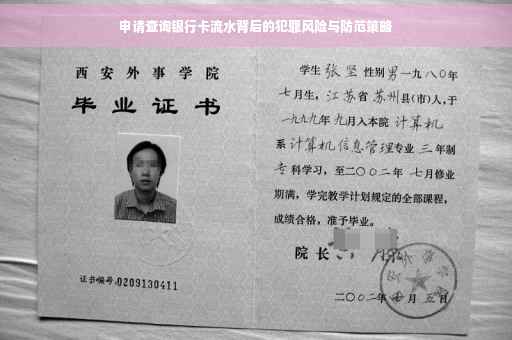 申请查询银行卡流水背后的犯罪风险与防范策略
西安外事学院
毕业证书
证书编号:0209130411
学生 张坚 性别 男 一九八〇年
七月生，江苏省 苏州县(市)人,于
一九九九年 九月入本院 计算机
系 计算机信息管理专业 三 年制
专 科学习，至二〇〇二年 七月修业
期满，学完教学计划规定的全部课程，
成绩合格，准予毕业。
院长
二〇〇二年 七 月 五 日